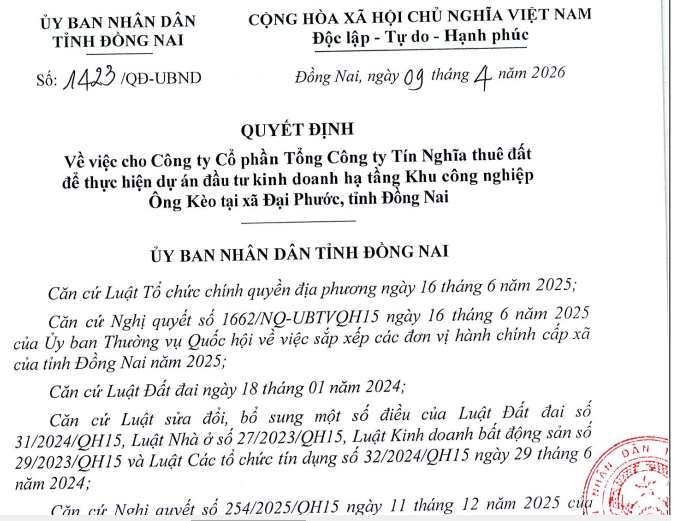 ỦY BAN NHÂN DÂN
TỈNH ĐỒNG NAI
CỘNG HÒA XÃ HỘI CHỦ NGHĨA VIỆT NAM
Độc lập - Tự do - Hạnh phúc
Số: 1423/QĐ-UBND
Đồng Nai, ngày 09 tháng 4 năm 2026
QUYẾT ĐỊNH
Về việc cho Công ty Cổ phần Tổng Công ty Tín Nghĩa thuê đất
để thực hiện dự án đầu tư kinh doanh hạ tầng Khu công nghiệp
Ông Kèo tại xã Đại Phước, tỉnh Đồng Nai
ỦY BAN NHÂN DÂN TỈNH ĐỒNG NAI
Căn cứ Luật Tổ chức chính quyền địa phương ngày 16 tháng 6 năm 2025;
Căn cứ Nghị quyết số 1662/NQ-UBTVQH15 ngày 16 tháng 6 năm 2025
của Ủy ban Thường vụ Quốc hội về việc sắp xếp các đơn vị hành chính cấp xã
của tỉnh Đồng Nai năm 2025;
Căn cứ Luật Đất đai ngày 18 tháng 01 năm 2024;
Căn cứ Luật sửa đổi, bổ sung một số điều của Luật Đất đai số
31/2024/QH15, Luật Nhà ở số 27/2023/QH15, Luật Kinh doanh bất động sản số
29/2023/QH15 và Luật Các tổ chức tín dụng số 32/2024/QH15 ngày 29 tháng 6
năm 2024;
Căn cứ Nghị quyết số 254/2025/QH15 ngày 11 tháng 12 năm 2025 của
NHÂN DÂN T